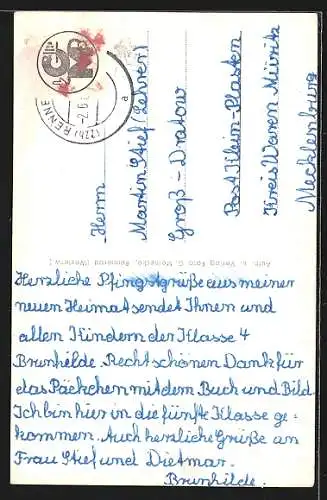 (22b) RENNE
-2.6.
a
Herrn
Martin Stief (Lehrer)
Groß-Dratow
Post Klein-Plasten
Kreis Waren Müritz
Mecklenburg
Aufn. u. Verlag Foto G. Rennerod (Westerw.)
Herzliche Pfingstgrüße aus meiner
neuen Heimat sendet Ihnen und
allen Kindern der Klasse 4
Brunhilde. Recht schönen Dank für
das Päckchen mit dem Buch und Bild.
Ich bin hier in die fünfte Klasse ge-
kommen. Auch herzliche Grüße an
Frau Stief und Dietmar.
Brunhilde.